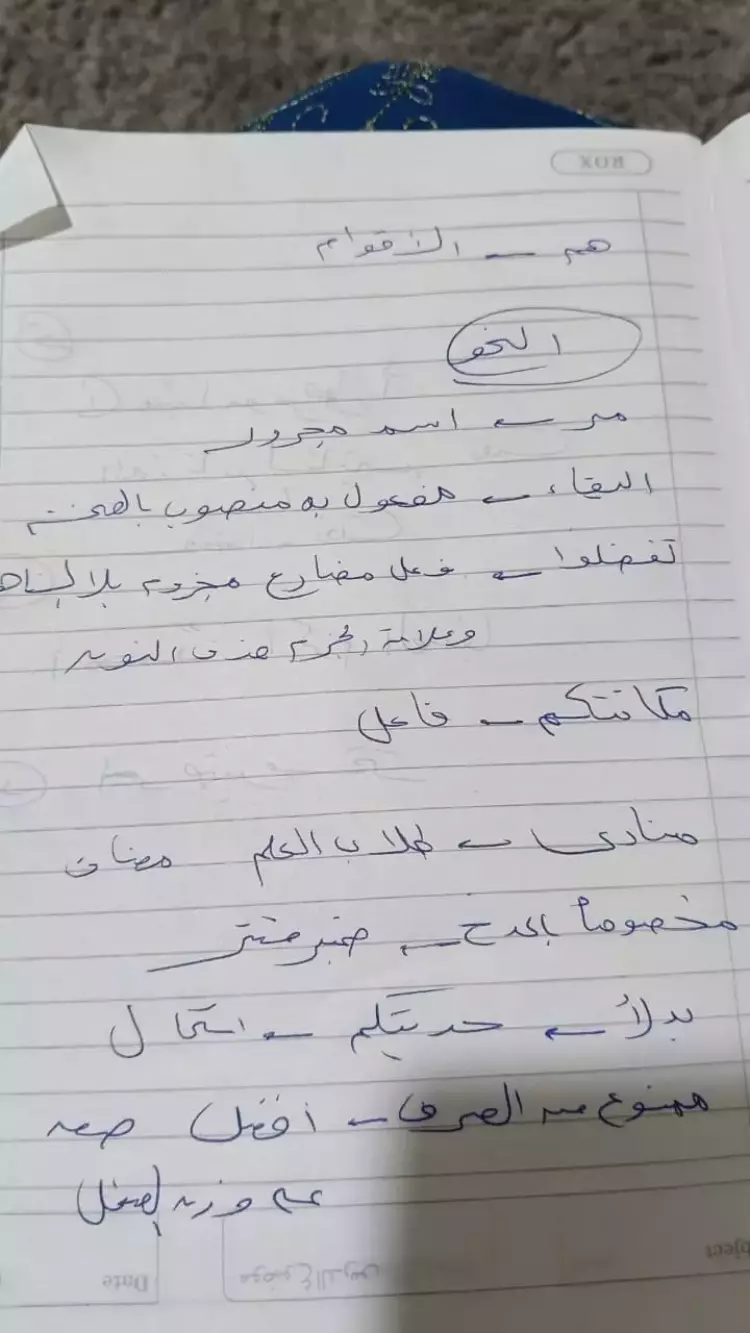 هم ← الأقوام
النحو
من ← اسم مجرور
البقاء ← مفعول به منصوب بالفتحة
تفضلوا ← فعل مضارع مجزوم بلا الناهـ
وعلامة الجزم حذف النون
مكانتكم ← فاعل
منادى ← طلاب العلم مضاف
مخصوصاً بالمدح ← ضمير مستتر
بدلاً ← حديثكم ← اشتمال
ممنوع من الصرف ← أفضل صفة
على وزن أفعل